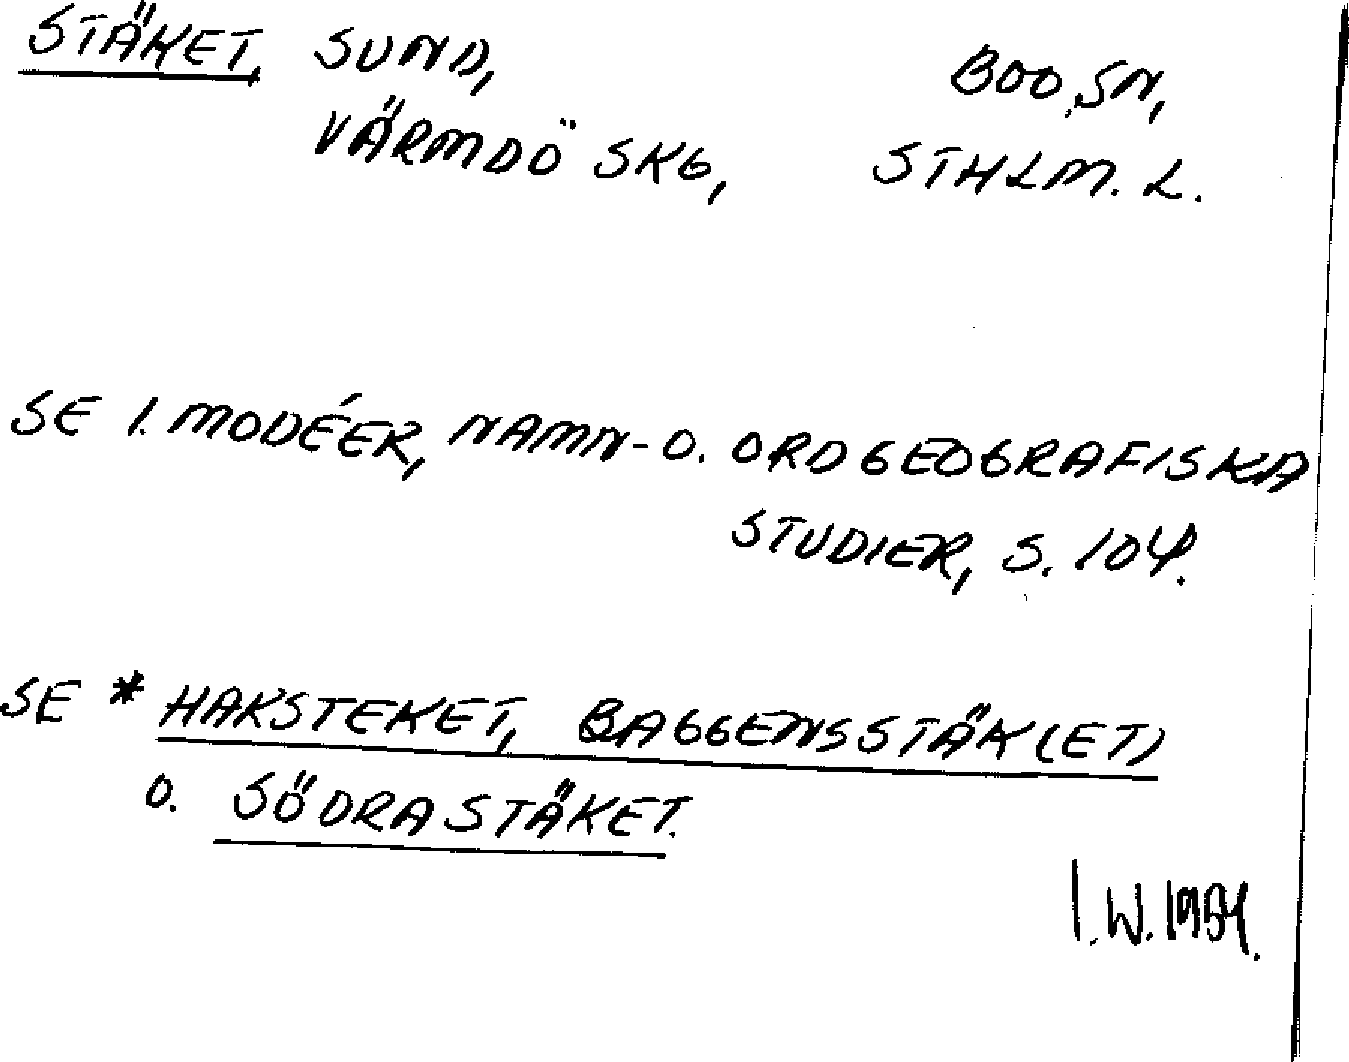 STÄKET, SUND, BOO SN,
VÄRMDÖ SKG, STHLM. L.
SE I. MODÉER, NAMN- O. ORDGEOGRAFISKA
STUDIER, S. 104.
SE * HAKSTEKET, BAGGENSSTÄK(ET)
O. SÖDRA STÄKET.
I.W.